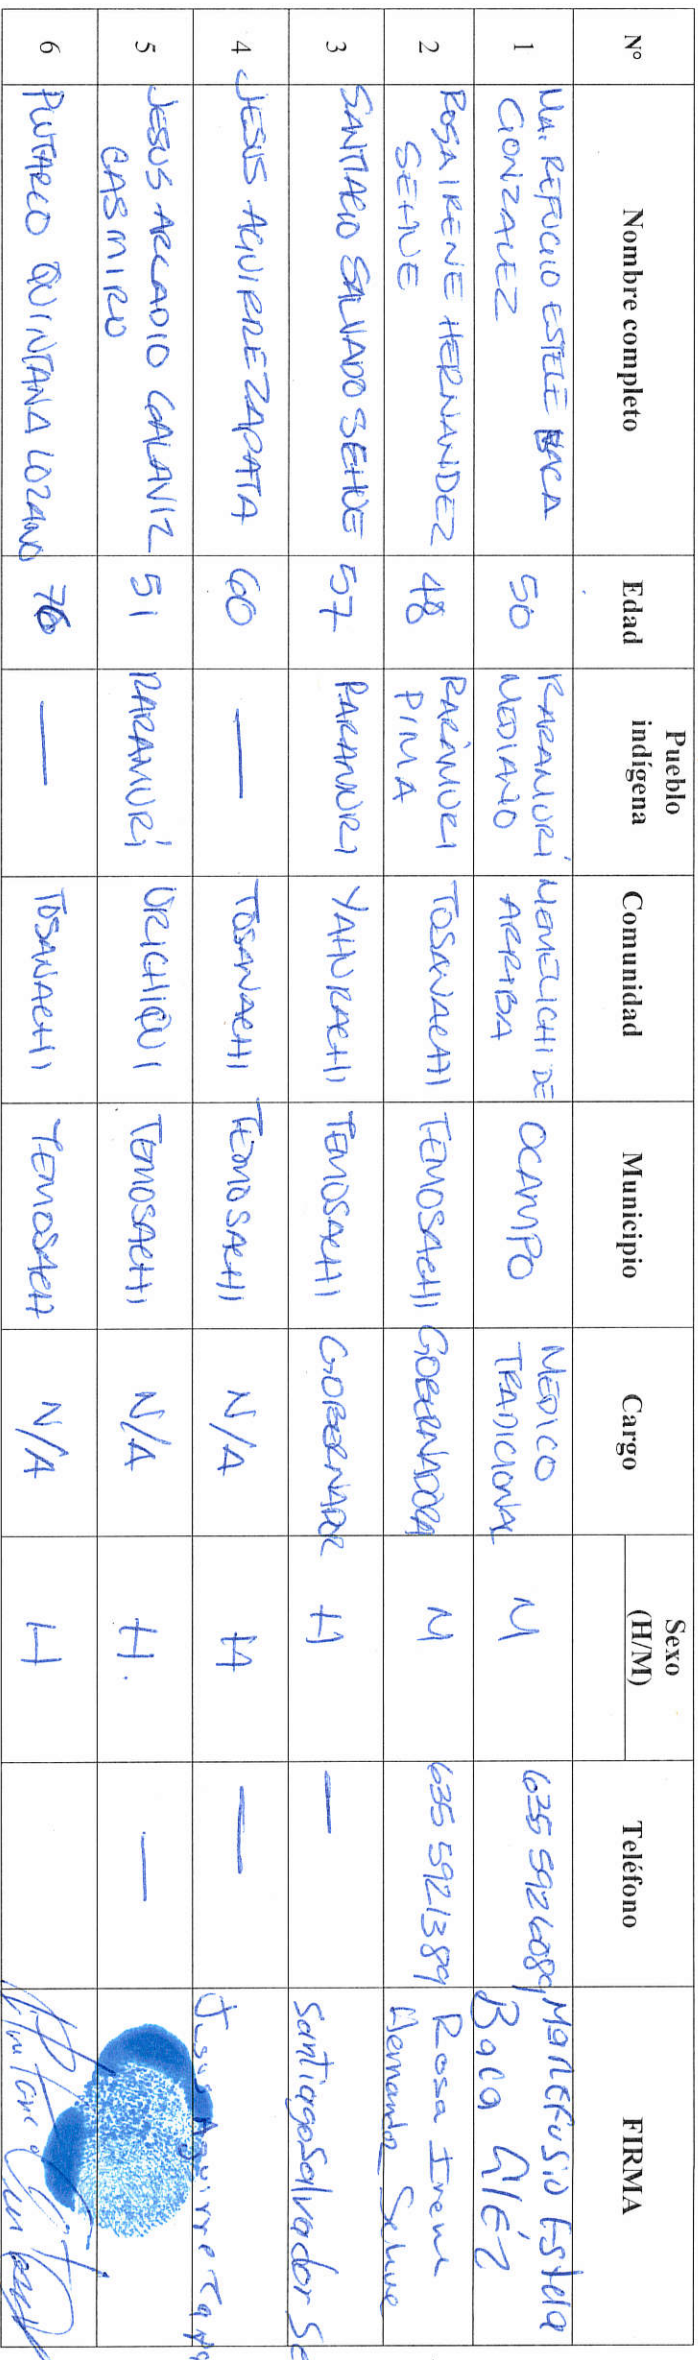 N° Nombre completo Edad Pueblo indígena Comunidad Municipio Cargo Sexo (H/M) Teléfono FIRMA
1 MA. REFUGIO ESTELE BACA GONZALEZ 50 RARAMURÍ MEDIANO MEMELICHI DE ARRIBA OCAMPO MEDICO TRADICIONAL M 635 5926089 Ma Refusio Estela Baca GlÉZ
2 ROSA IRENE HERNANDEZ SEHUE 48 RARÁMURI PIMA TOSANACHI TEMOSACHI GOBERNADORA M 635 5921389 Rosa Irene Hernandez Sehue
3 SANTIAGO SALVADO SEHUE 57 RARAMURI YAHURACHI TEMOSACHI GOBERNADOR H — Santiago Salvador Se
4 JESUS AGUIRRE ZAPATA 60 — TOSANACHI TEMOSACHI N/A H — Jesus Aguirre
5 JESUS ARCADIO GALAVIZ CASMIRO 51 RARAMURÍ URICHIQUI TEMOSACHI N/A H. —
6 PLUTARCO QUINTANA LOZANO 76 — TOSANACHI TEMOSACHI N/A H